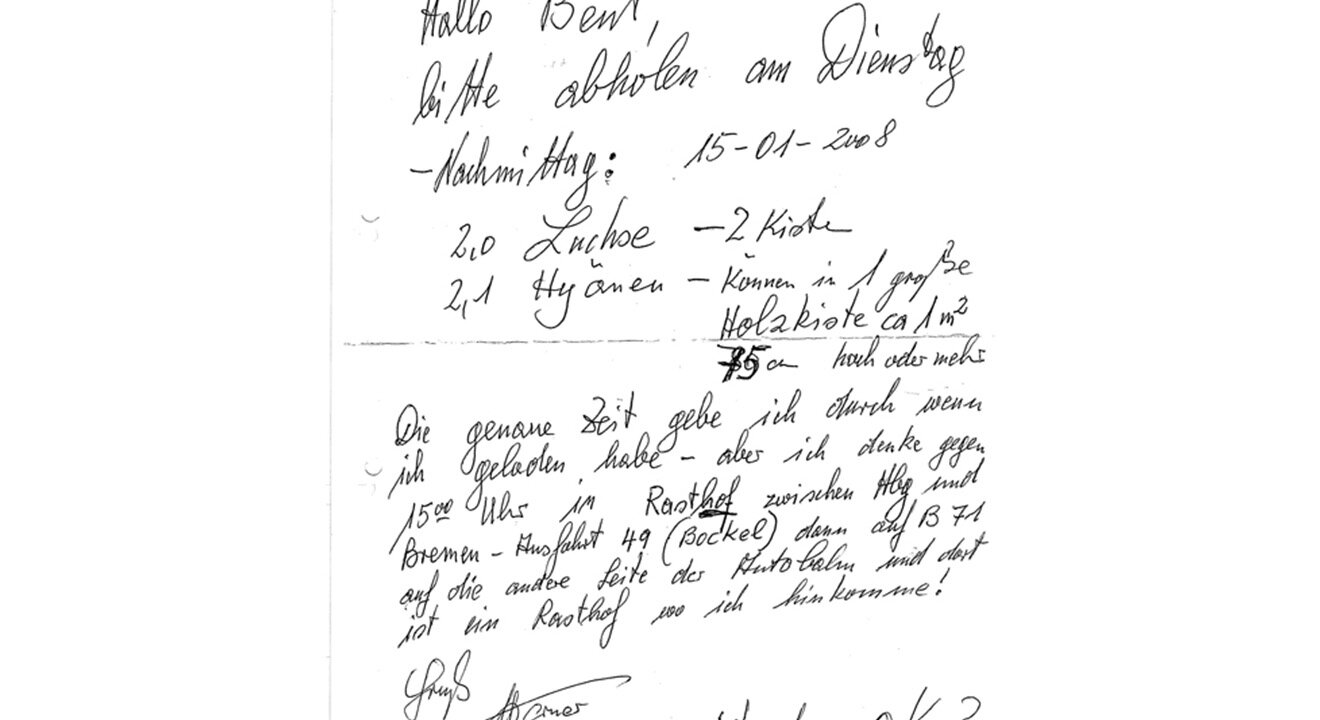 Hallo Bent,
bitte abholen am Dienstag
-Nachmittag: 15-01-2008
2,0 Luchse - 2 Kisten
2,1 Hyänen - Können in 1 große
Holzkiste ca 1 m²
75 cm hoch oder mehr
Die genaue Zeit gebe ich durch wenn
ich geladen habe - aber ich denke gegen
15⁰⁰ Uhr in Rasthof zwischen Hbg und
Bremen - Ausfahrt 49 (Bockel) dann auf B 71
auf die andere Seite der Autobahn und dort
ist ein Rasthof wo ich hinkomme!
Gruß
Werner